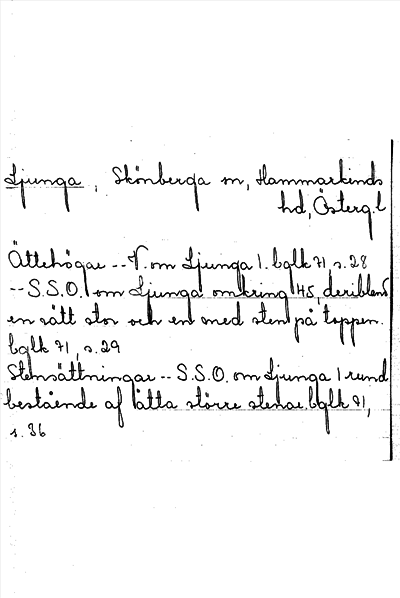 Ljunga, Skönberga sn, Hammarkinds
hd, Österg. l
Ättehögar -- V. om Ljunga 1. bglk 71 s. 28
-- S.S.O. om Ljunga omkring 45, deribland
en rätt stor och en med sten på toppen.
bglk 71, s. 29
Stensättningar -- S.S.O. om Ljunga 1 rund
bestående af åtta större stenar. bglk 71,
s. 36